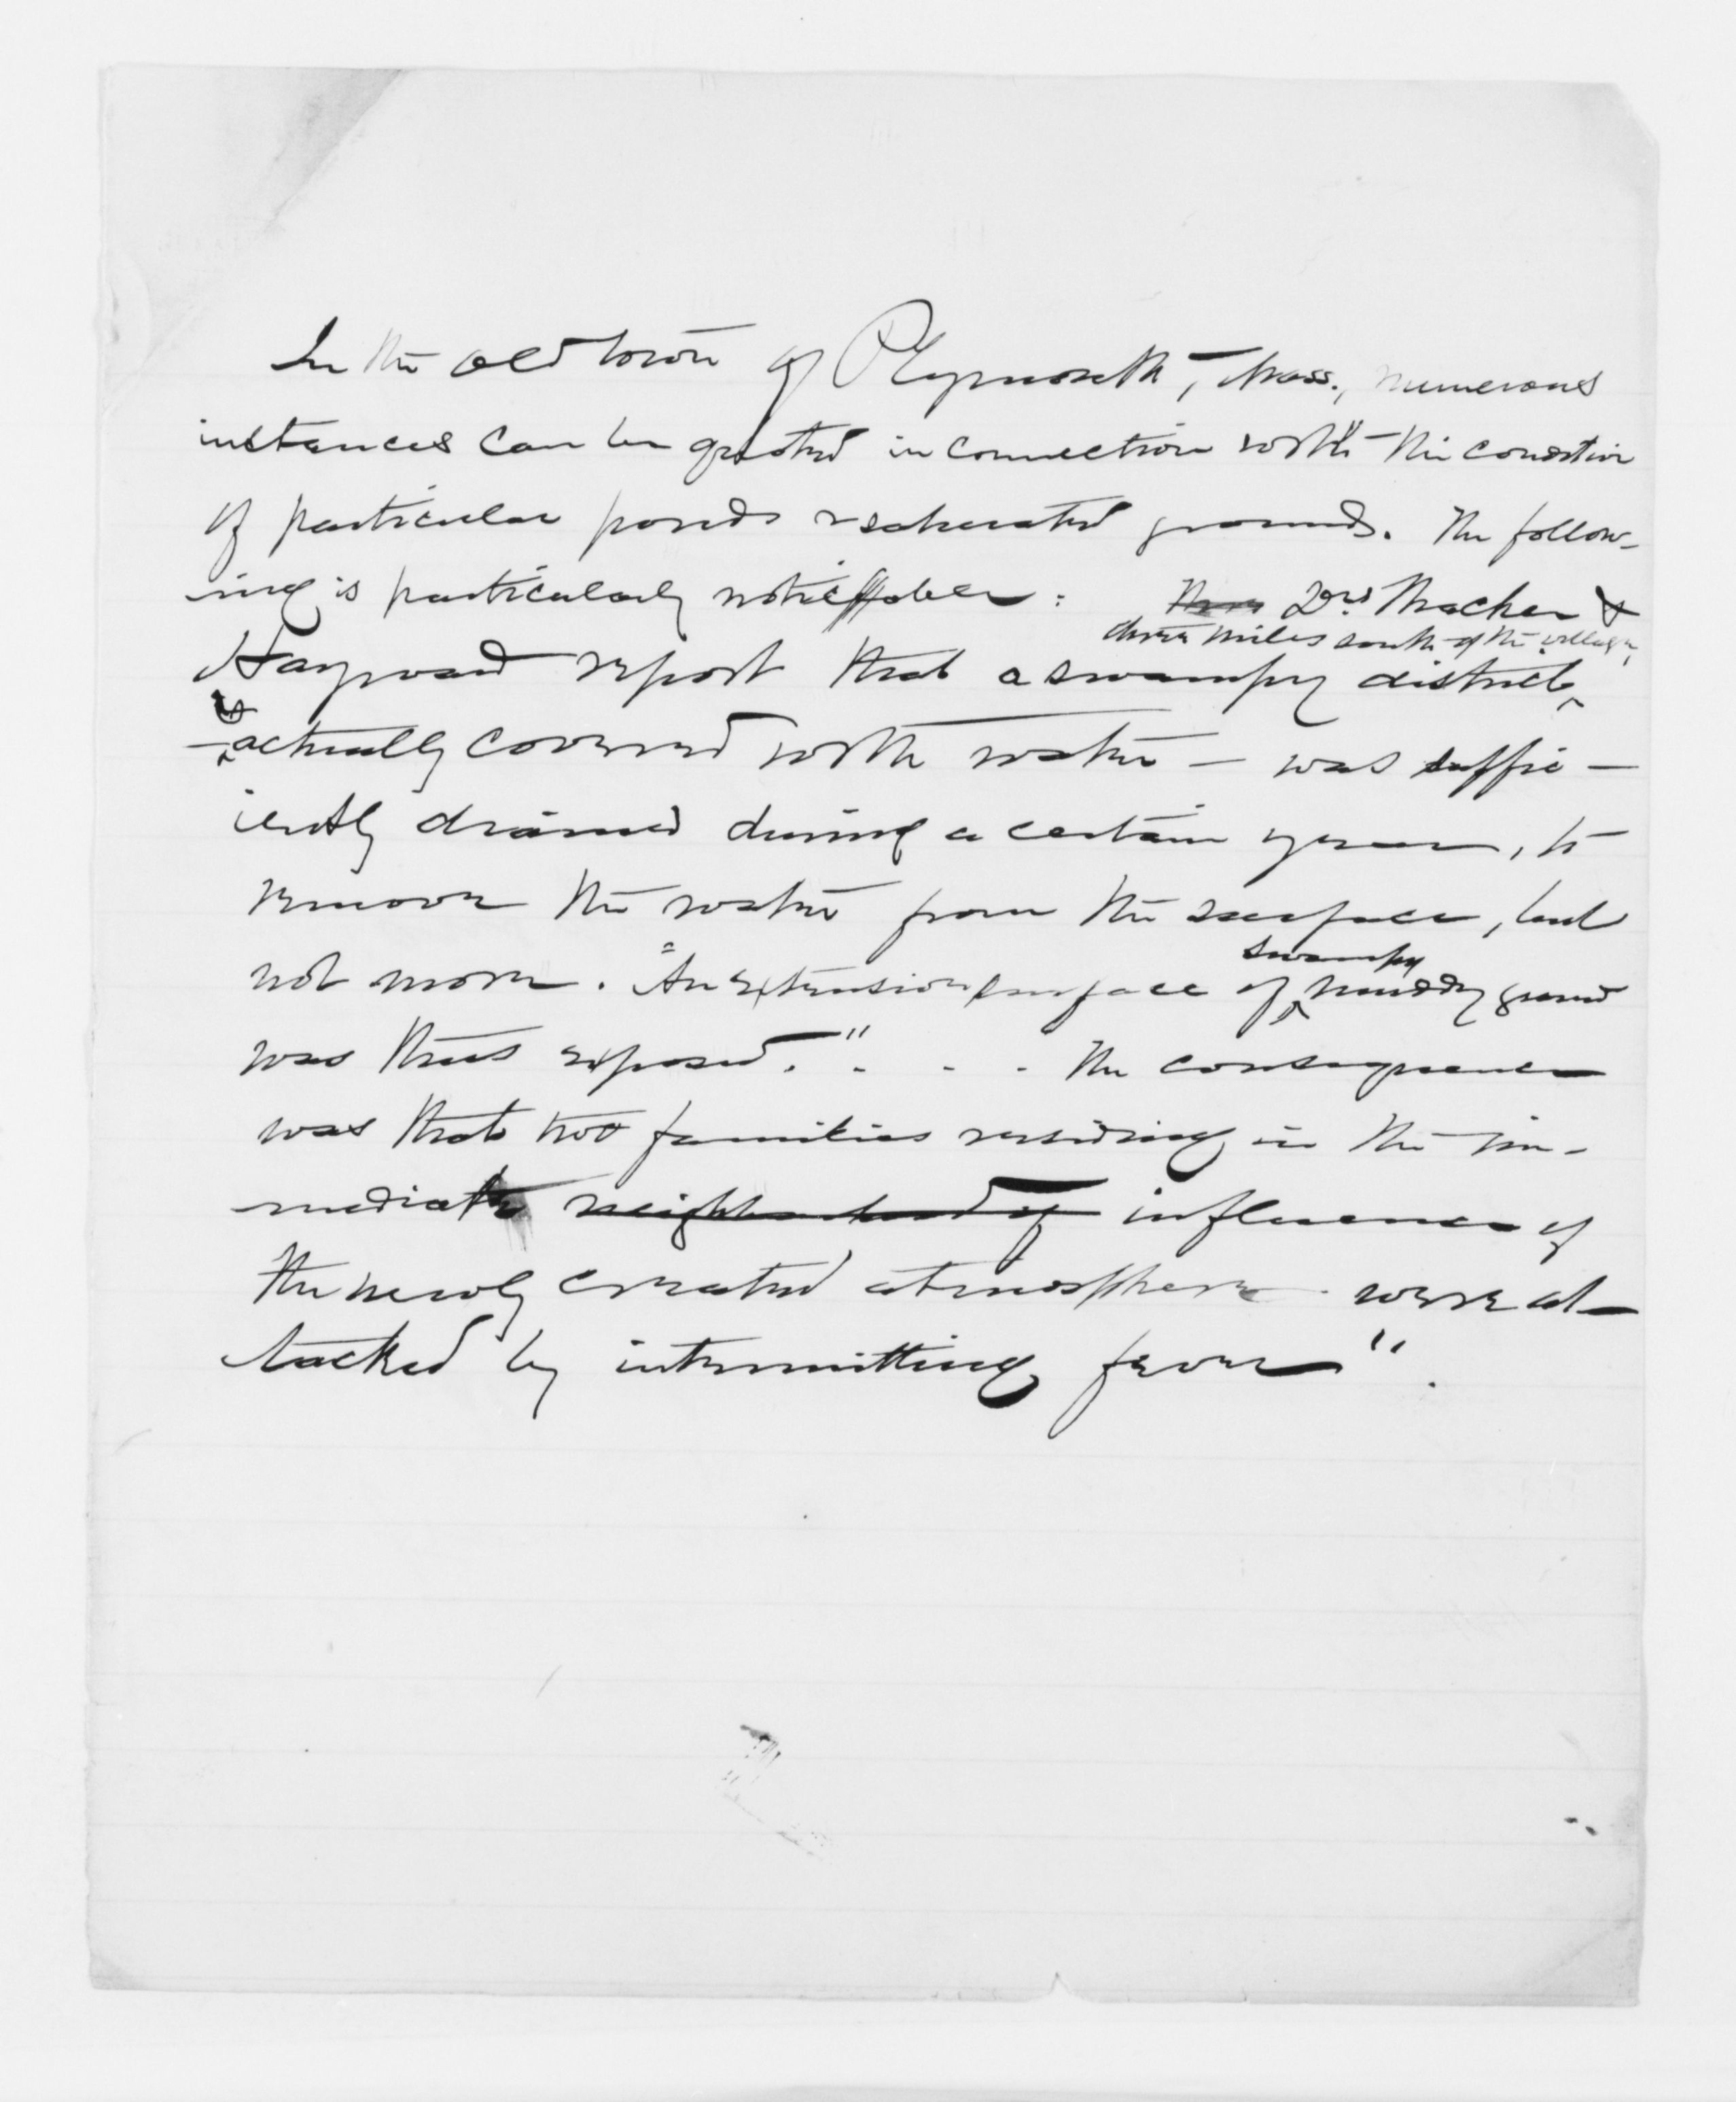 In the old town of Plymouth, Mass., numerous
instances can be quoted in connection with the condition
of particular ponds & saturated grounds. The follow-
ing is particularly noticeable: Drs. Thacher &
three miles south of the village,
Hayward report that a swampy district,
&
— actually covered with water — was suffic-
iently drained during a certain year, to
remove the water from the surface, but
swampy
not more. "An extensive surface of muddy ground
was thus exposed." . . . The consequence
was that two families residing in the im-
mediate neighborhood of influence of
the newly created atmosphere were at-
tacked by intermitting fever".